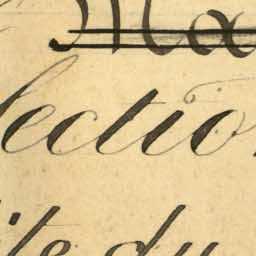 Ma
lection
ite du